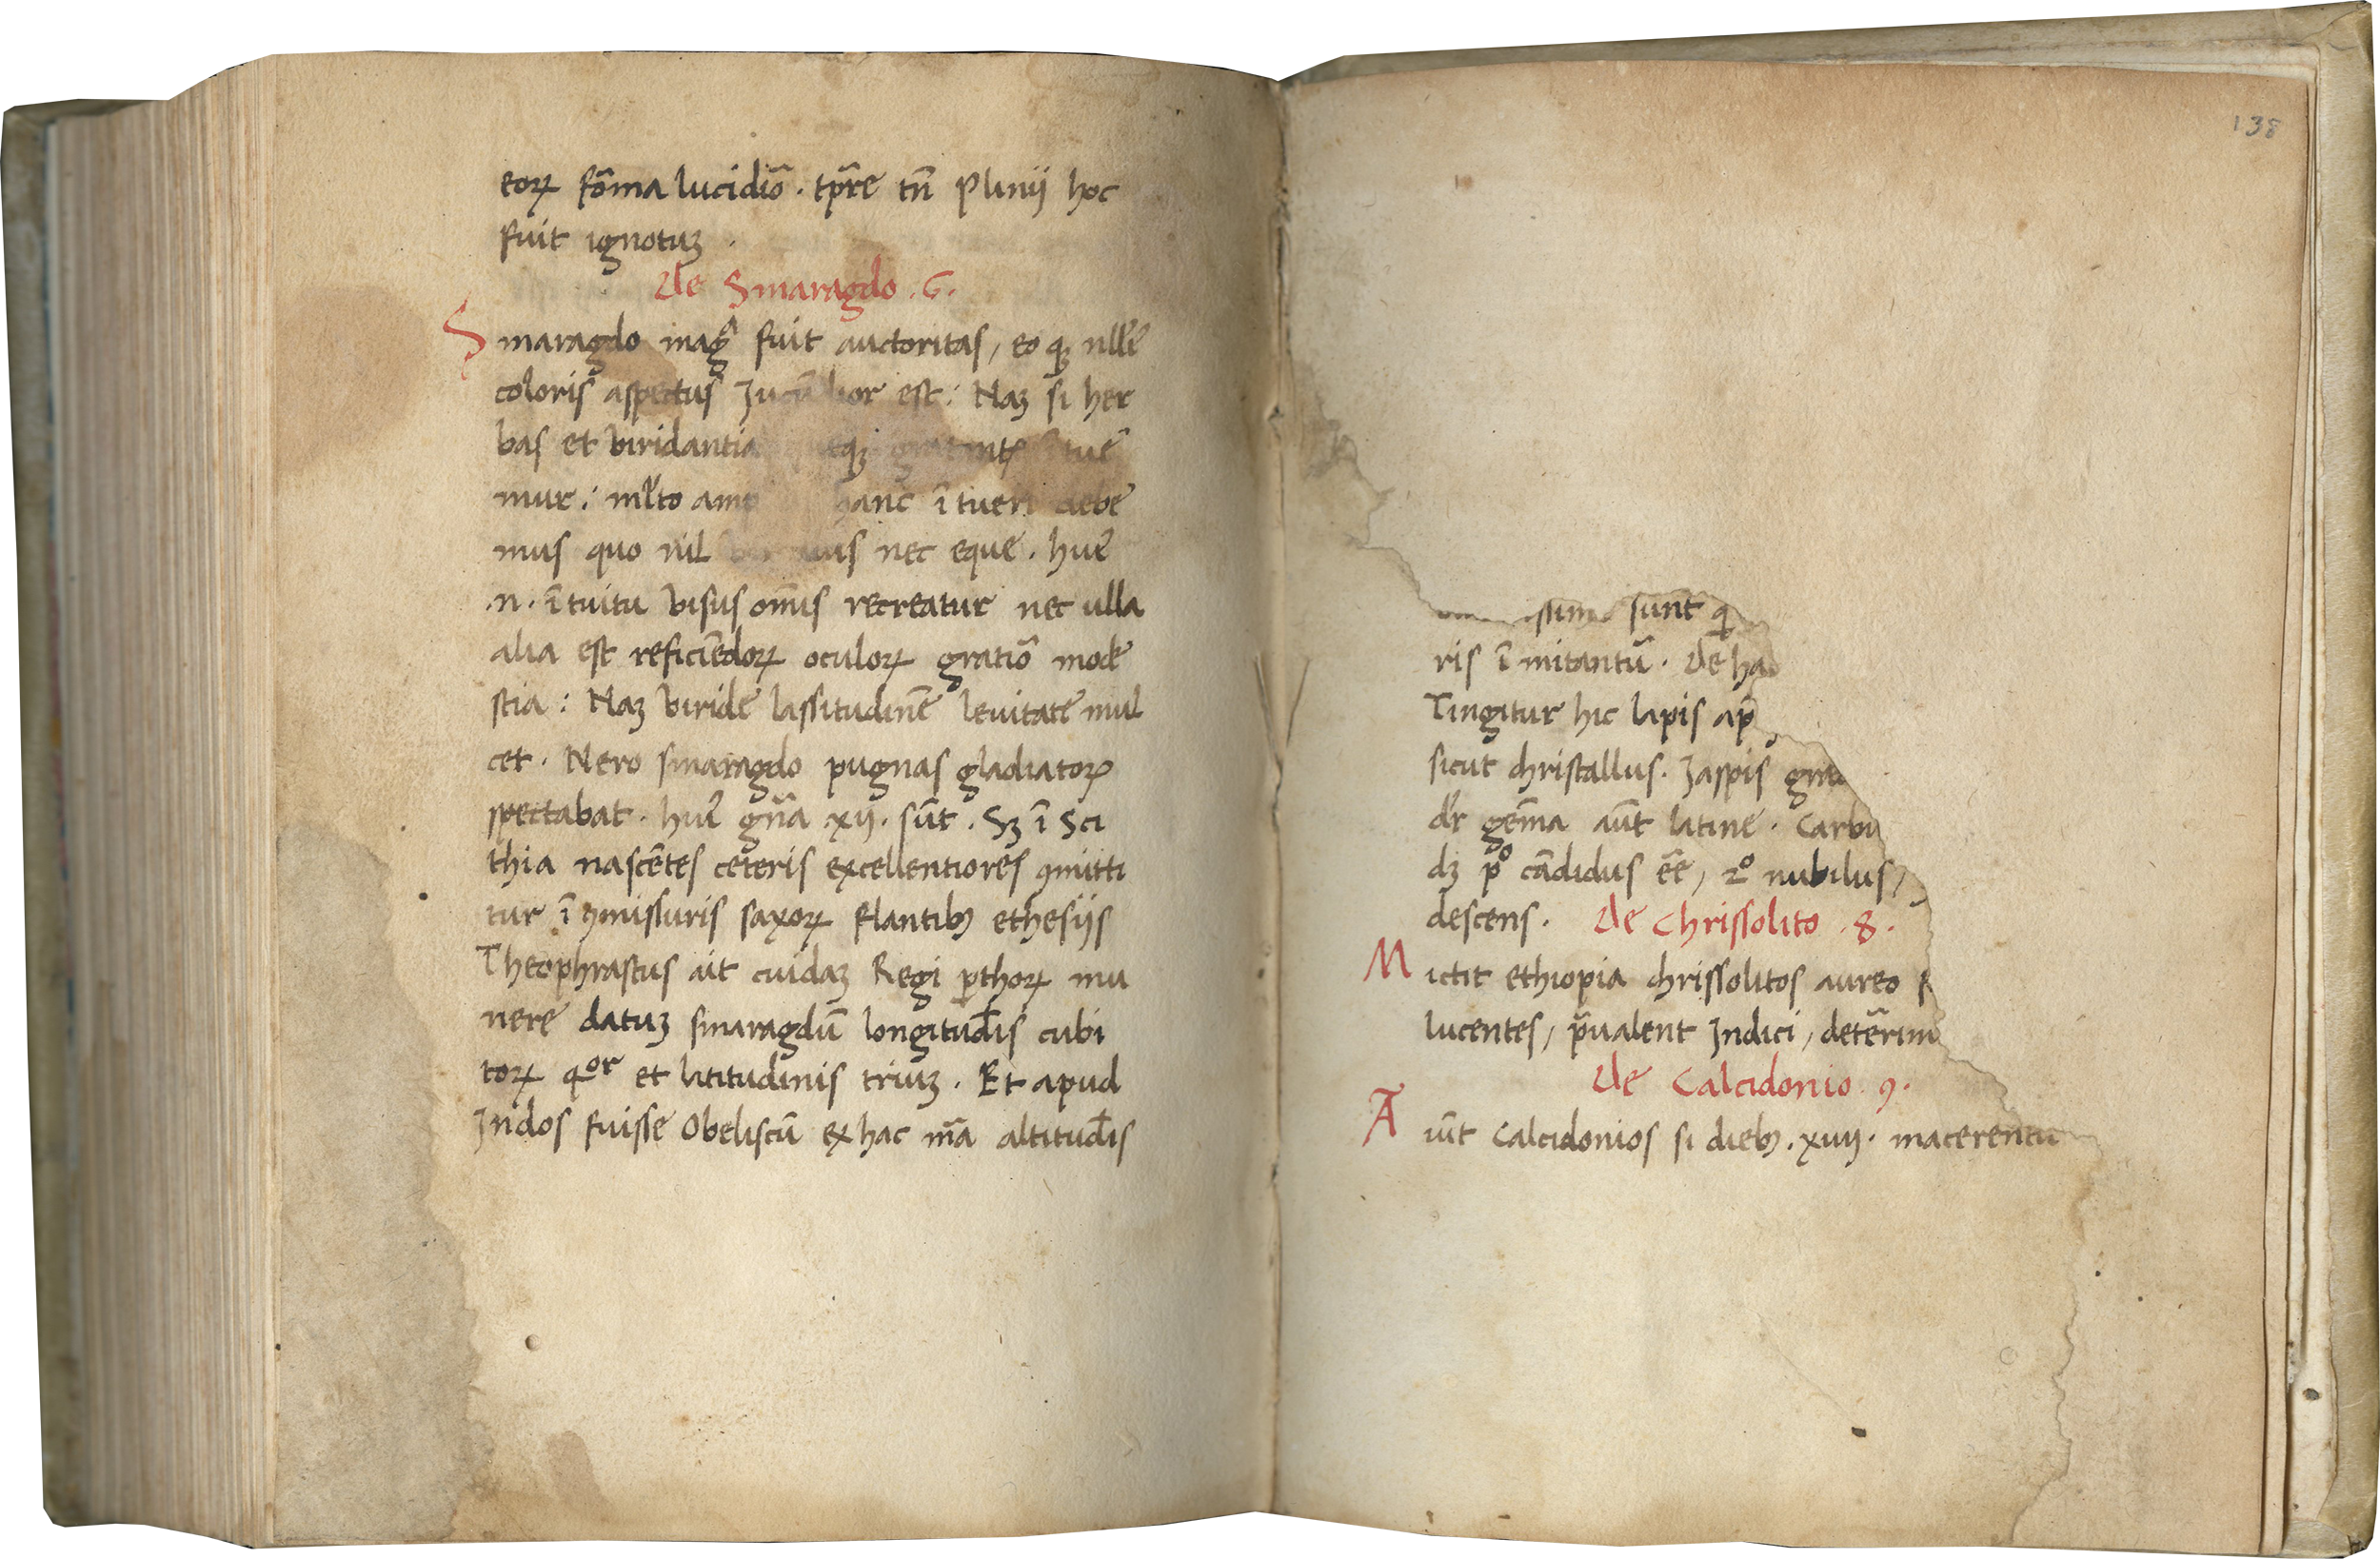 eoꝝ fõma lucidiõ . tp̃re tñ Plinij hoc
fuit ignotuꝫ .
De Smaragdo . 6 .
Smaragdo magᵃ fuit auctoritas / eo qꝫ nlle᷑
coloris aspectus est : Naꝫ si her
bas et viridantia
mur : ml̓to ĩtueri debẽ
mus quo nil nec eque . hui᷑
.n. ĩtuitu visus om̃is recreatur nec ulla
alia est reficiẽdoꝝ oculoꝝ gratiõ mode
stia : Naꝫ viride lassitudinẽ levitate mul
cet . Nero smaragdo pugnas gladiatoꝝ
spectabat . hui᷑ gñа .xij. sũt . Sꝫ ĩ Sci
thia nascẽtes ceteris excellentiores ꝯmitti
tur ĩ ꝯmissuris saxoꝝ flantibꝫ ethesijs
Theophrastus ait cuidaꝫ Regi ꝑthoꝝ mu
nere datuꝫ smaragdũ longitud̃is cubi
toꝝ qᵒʳ et latitudinis triuꝫ . Et apud
Indos fuisse Obeliscũ ex hac mã altitud̃is
138
sunt
ris ĩmitantũ . De
Tingitur hic lapis
sicut christallus . Iaspis
dr̃ gẽma aũt latine .
dꝫ pº cãdidus eẽ / 2º nubilus /
descens . De Chrissolito . 8 .
Mictit ethiopia chrissolitos aureo
lucentes / p̃ualent Indici /
De Calcidonio . 9 .
Aiũt Calcidonios si diebꝫ . xvij . macerentu